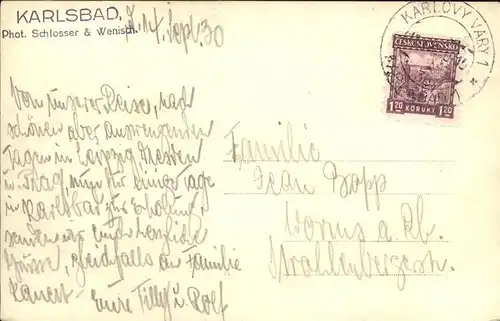 KARLSBAD,
Phot. Schlosser & Wenisch.
14. Sept. 30
KARLOVY VARY 1
ČESKOSLOVENSKO
1.20 KORUNY 1.20
Von unserer Reise, nach
schönen aber anstrengenden
Tagen in Leipzig Dresden
u. Prag, nun für einige Tage
in Karlsbad zur Erholung,
senden wir euch herzliche
Grüsse, gleichfalls an Familie
Eure Tilly u. Rolf
Familie
Jean Bopp
Worms a. Rh.